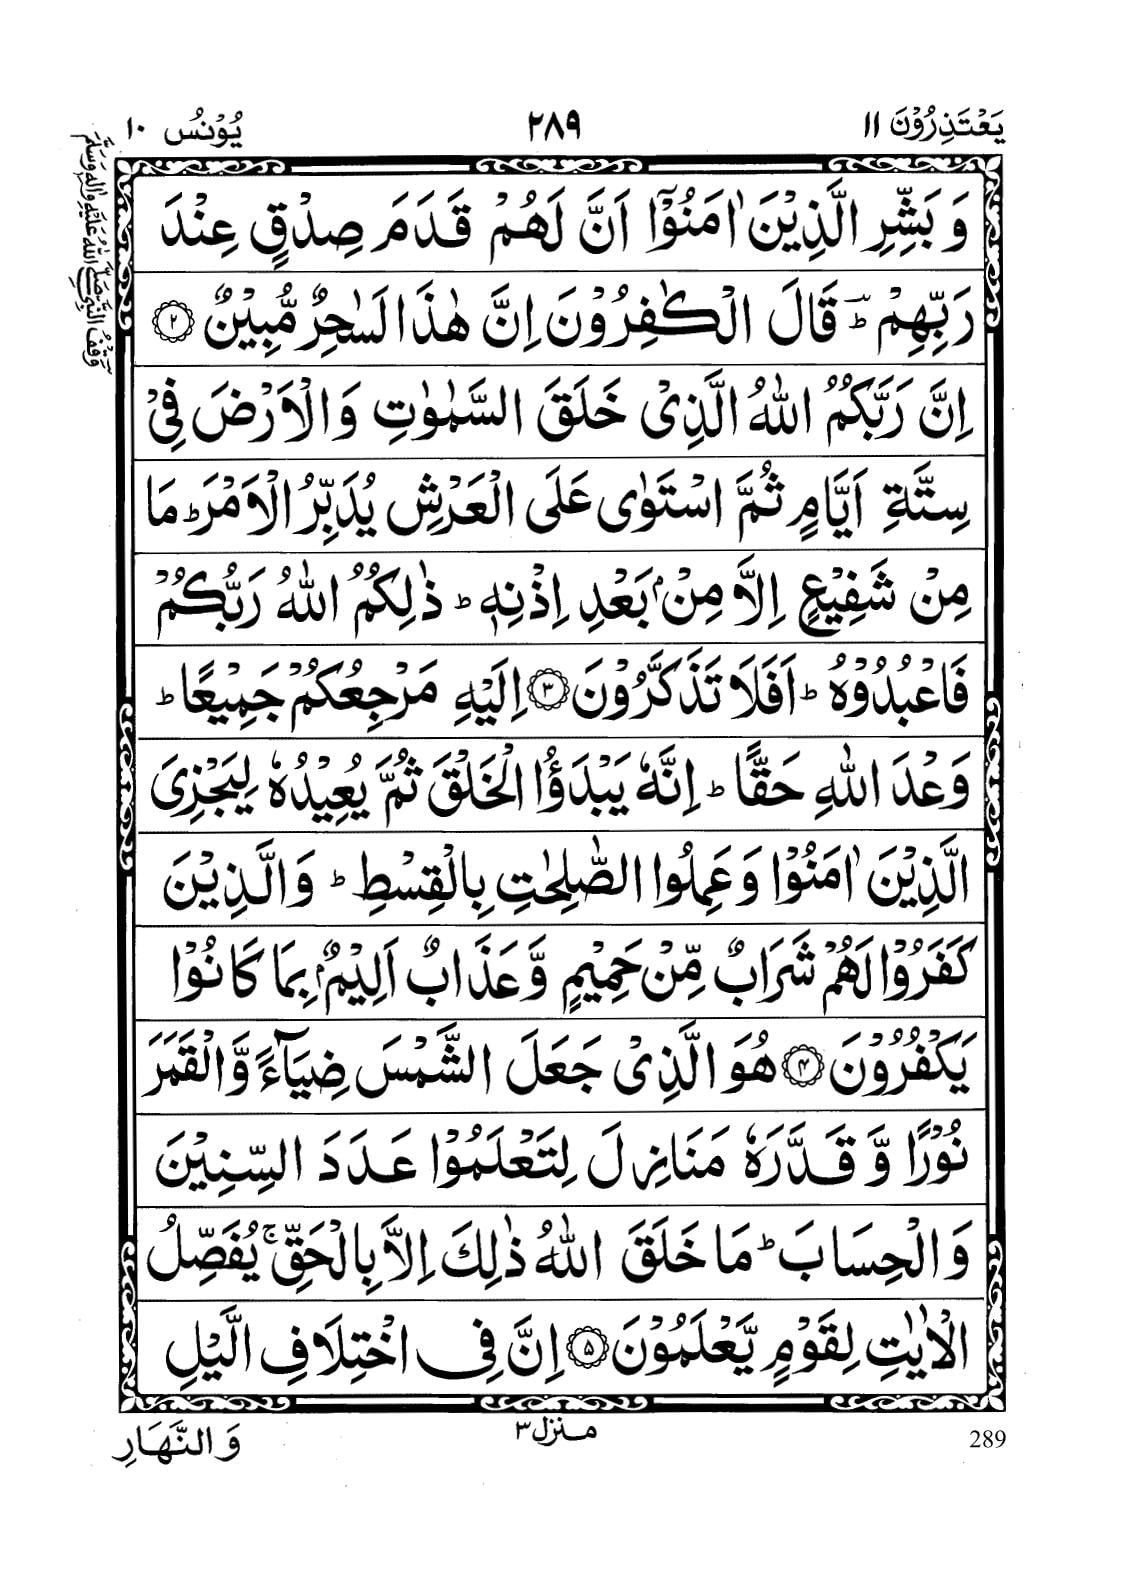 يَعْتَذِرُوْنَ ١١
٢٨٩
يُوْنُس ١٠
وَقْفُ النَّبِيِّ صَلَّى اللّٰهُ عَلَيْهِ وَاٰلِهٖ وَسَلَّمَ
وَ بَشِّرِ الَّذِيْنَ اٰمَنُوْۤا اَنَّ لَهُمْ قَدَمَ صِدْقٍ عِنْدَ
رَبِّهِمْ ؕؔ قَالَ الْكٰفِرُوْنَ اِنَّ هٰذَا لَسٰحِرٌ مُّبِيْنٌ ﴿۲﴾
اِنَّ رَبَّكُمُ اللّٰهُ الَّذِيْ خَلَقَ السَّمٰوٰتِ وَالْاَرْضَ فِيْ
سِتَّةِ اَيَّامٍ ثُمَّ اسْتَوٰى عَلَى الْعَرْشِ يُدَبِّرُ الْاَمْرَ ؕ مَا
مِنْ شَفِيْعٍ اِلَّا مِنْۢ بَعْدِ اِذْنِهٖ ؕ ذٰلِكُمُ اللّٰهُ رَبُّكُمْ
فَاعْبُدُوْهُ ؕ اَفَلَا تَذَكَّرُوْنَ ﴿۳﴾ اِلَيْهِ مَرْجِعُكُمْ جَمِيْعًا ؕ
وَعْدَ اللّٰهِ حَقًّا ؕ اِنَّهٗ يَبْدَؤُا الْخَلْقَ ثُمَّ يُعِيْدُهٗ لِيَجْزِيَ
الَّذِيْنَ اٰمَنُوْا وَعَمِلُوا الصّٰلِحٰتِ بِالْقِسْطِ ؕ وَالَّذِيْنَ
كَفَرُوْا لَهُمْ شَرَابٌ مِّنْ حَمِيْمٍ وَّعَذَابٌ اَلِيْمٌۢ بِمَا كَانُوْا
يَكْفُرُوْنَ ﴿۴﴾ هُوَ الَّذِيْ جَعَلَ الشَّمْسَ ضِيَآءً وَّالْقَمَرَ
نُوْرًا وَّ قَدَّرَهٗ مَنَازِلَ لِتَعْلَمُوْا عَدَدَ السِّنِيْنَ
وَالْحِسَابَ ؕ مَا خَلَقَ اللّٰهُ ذٰلِكَ اِلَّا بِالْحَقِّ ۚ يُفَصِّلُ
الْاٰيٰتِ لِقَوْمٍ يَّعْلَمُوْنَ ﴿۵﴾ اِنَّ فِي اخْتِلَافِ الَّيْلِ
289
منزل ٣
وَالنَّهَارِ